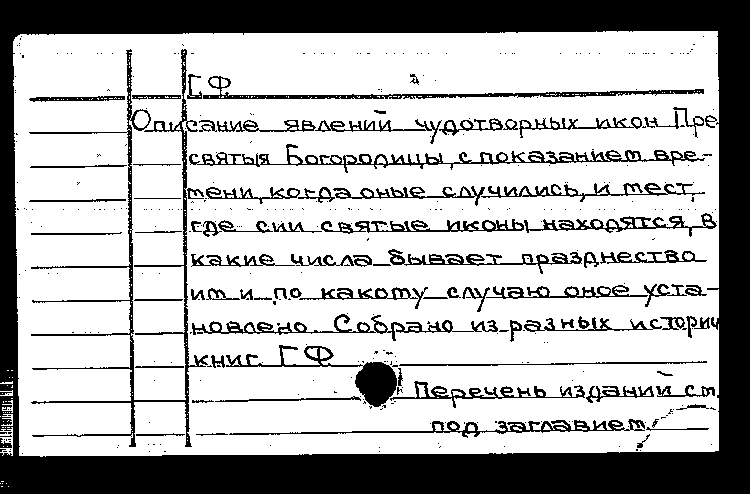 Г.Ф.
Описание явлений чудотворных икон Пре
святыя Богородицы, с показанием вре-
мени, когда оные случились, и мест,
где сии святые иконы находятся, в
какие числа бывает празднество
им и по какому случаю оное уста-
новлено. Собрано из разных историч
книг. Г.Ф.
Перечень изданий см.
под заглавием.